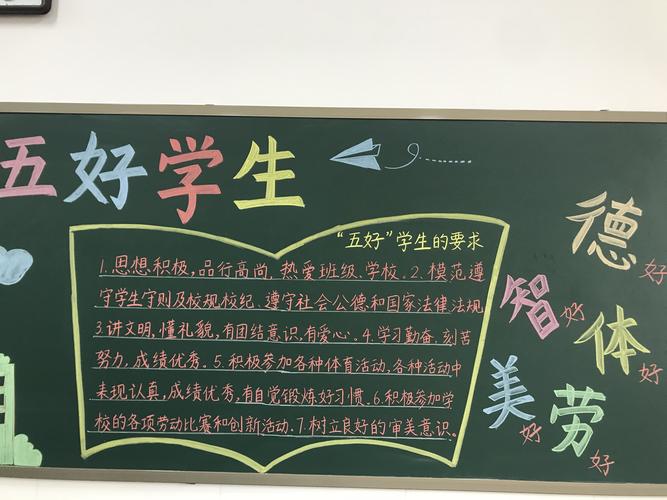 五好学生
“五好”学生的要求
1.思想积极,品行高尚,热爱班级、学校。2.模范遵
守学生守则及校规校纪、遵守社会公德和国家法律法规
3.讲文明,懂礼貌,有团结意识,有爱心。4.学习勤奋、刻苦
努力,成绩优秀。5.积极参加各种体育活动,各种活动中
表现认真,成绩优秀,有自觉锻炼好习惯。6.积极参加学
校的各项劳动比赛和创新活动。7.树立良好的审美意识。
德好
智好
体好
美好
劳好